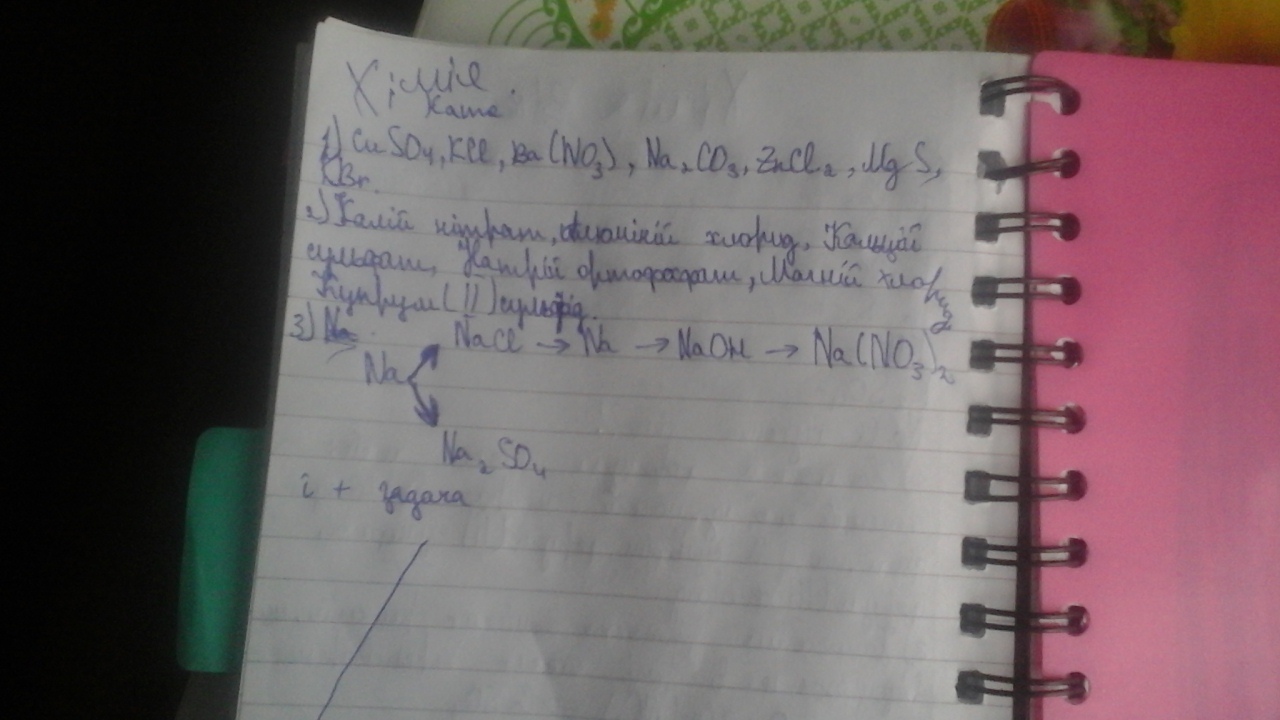 Хімія
Катя.
1) CuSO₄, KCl, Ba(NO₃), Na₂CO₃, ZnCl₂, MgS,
KBr.
2) Калій нітрат, алюміній хлорид, Кальцій
сульфат, Натрій ортофосфат, Магній хлорид
Купрум(II) сульфід.
3) Na
NaCl → Na → NaOH → Na(NO₃)₂
Na
Na₂SO₄
і + задача